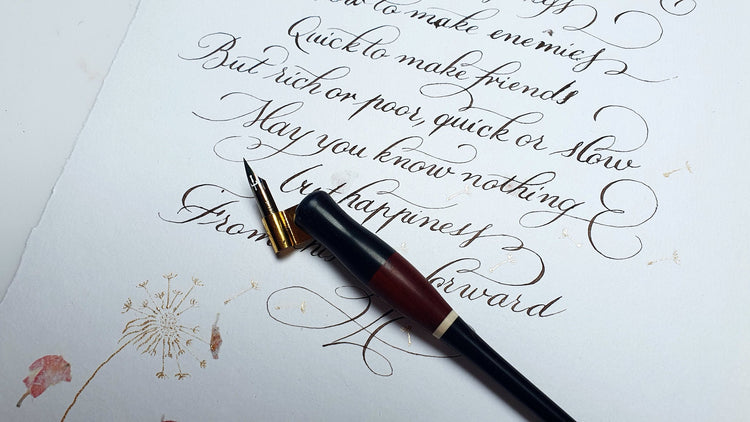 to make enemies
Quick to make friends
But rich or poor, quick or slow
May you know nothing
but happiness
From forward